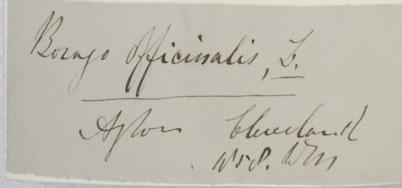 Borago Officinalis, L.
Ayton Cleveland